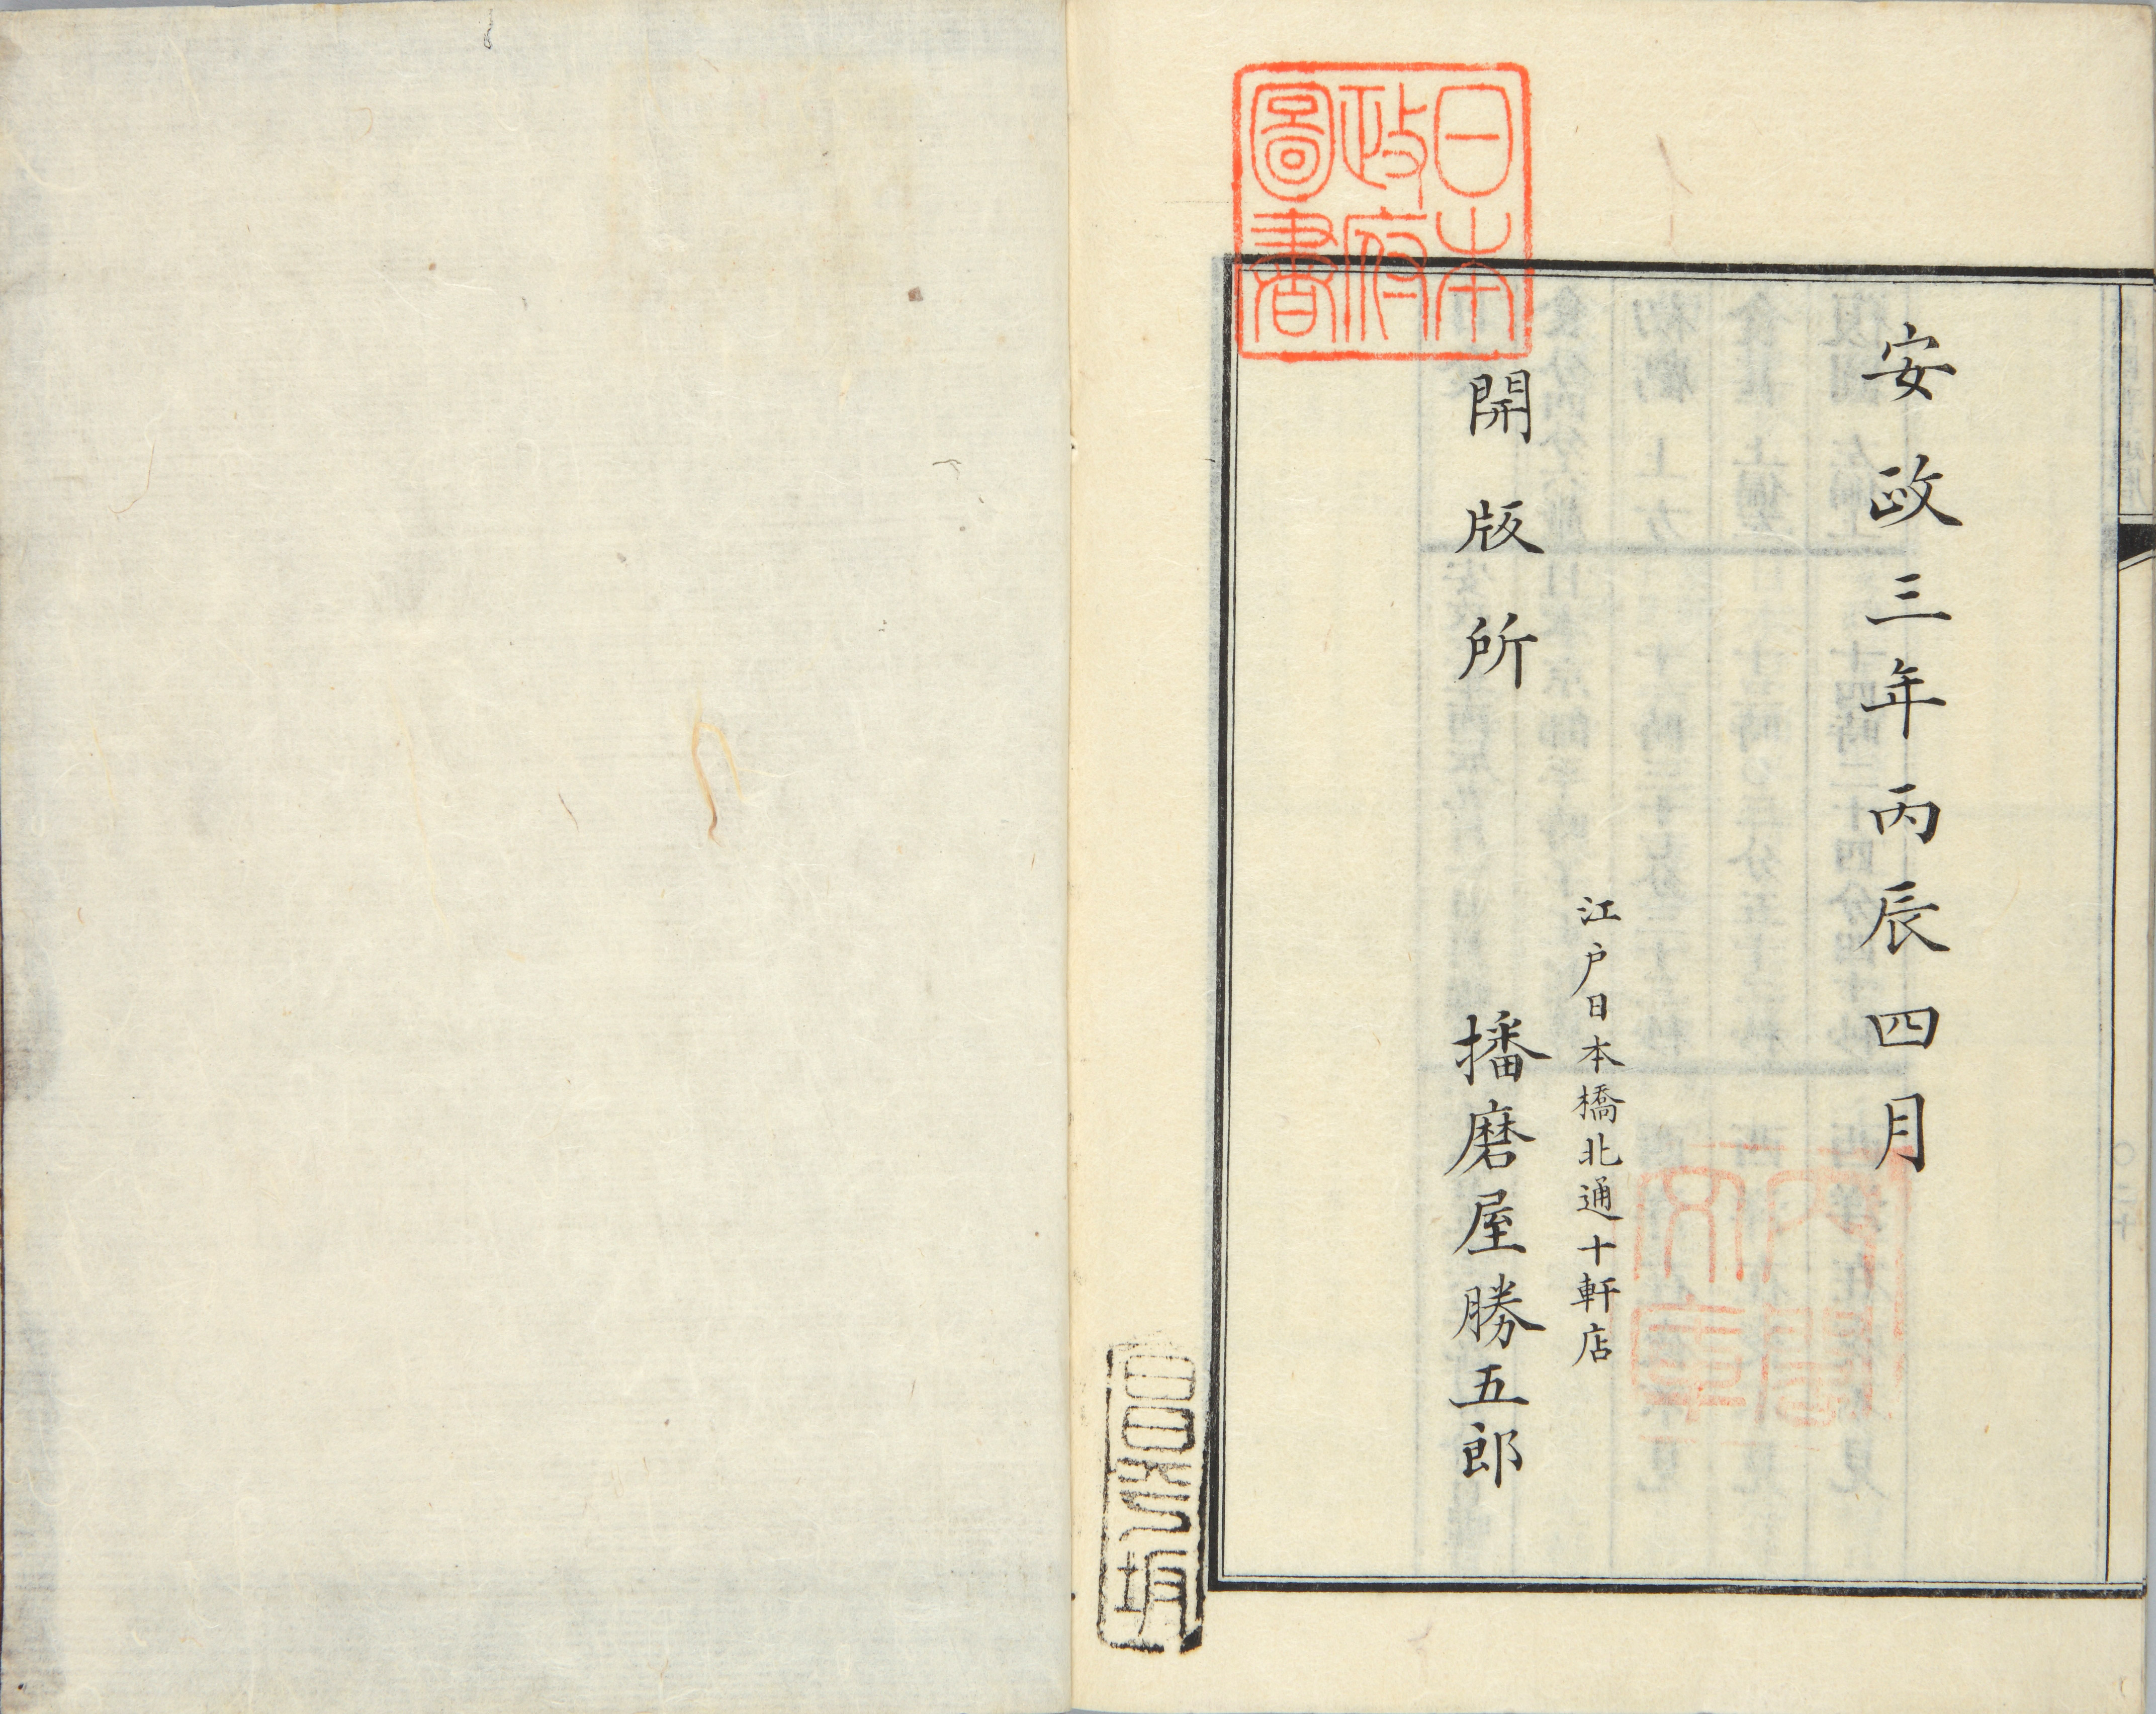 安政三年丙辰四月
江戸日本橋北通十軒店
開版所 播磨屋勝五郎
日本
政府
圖書
昌平坂